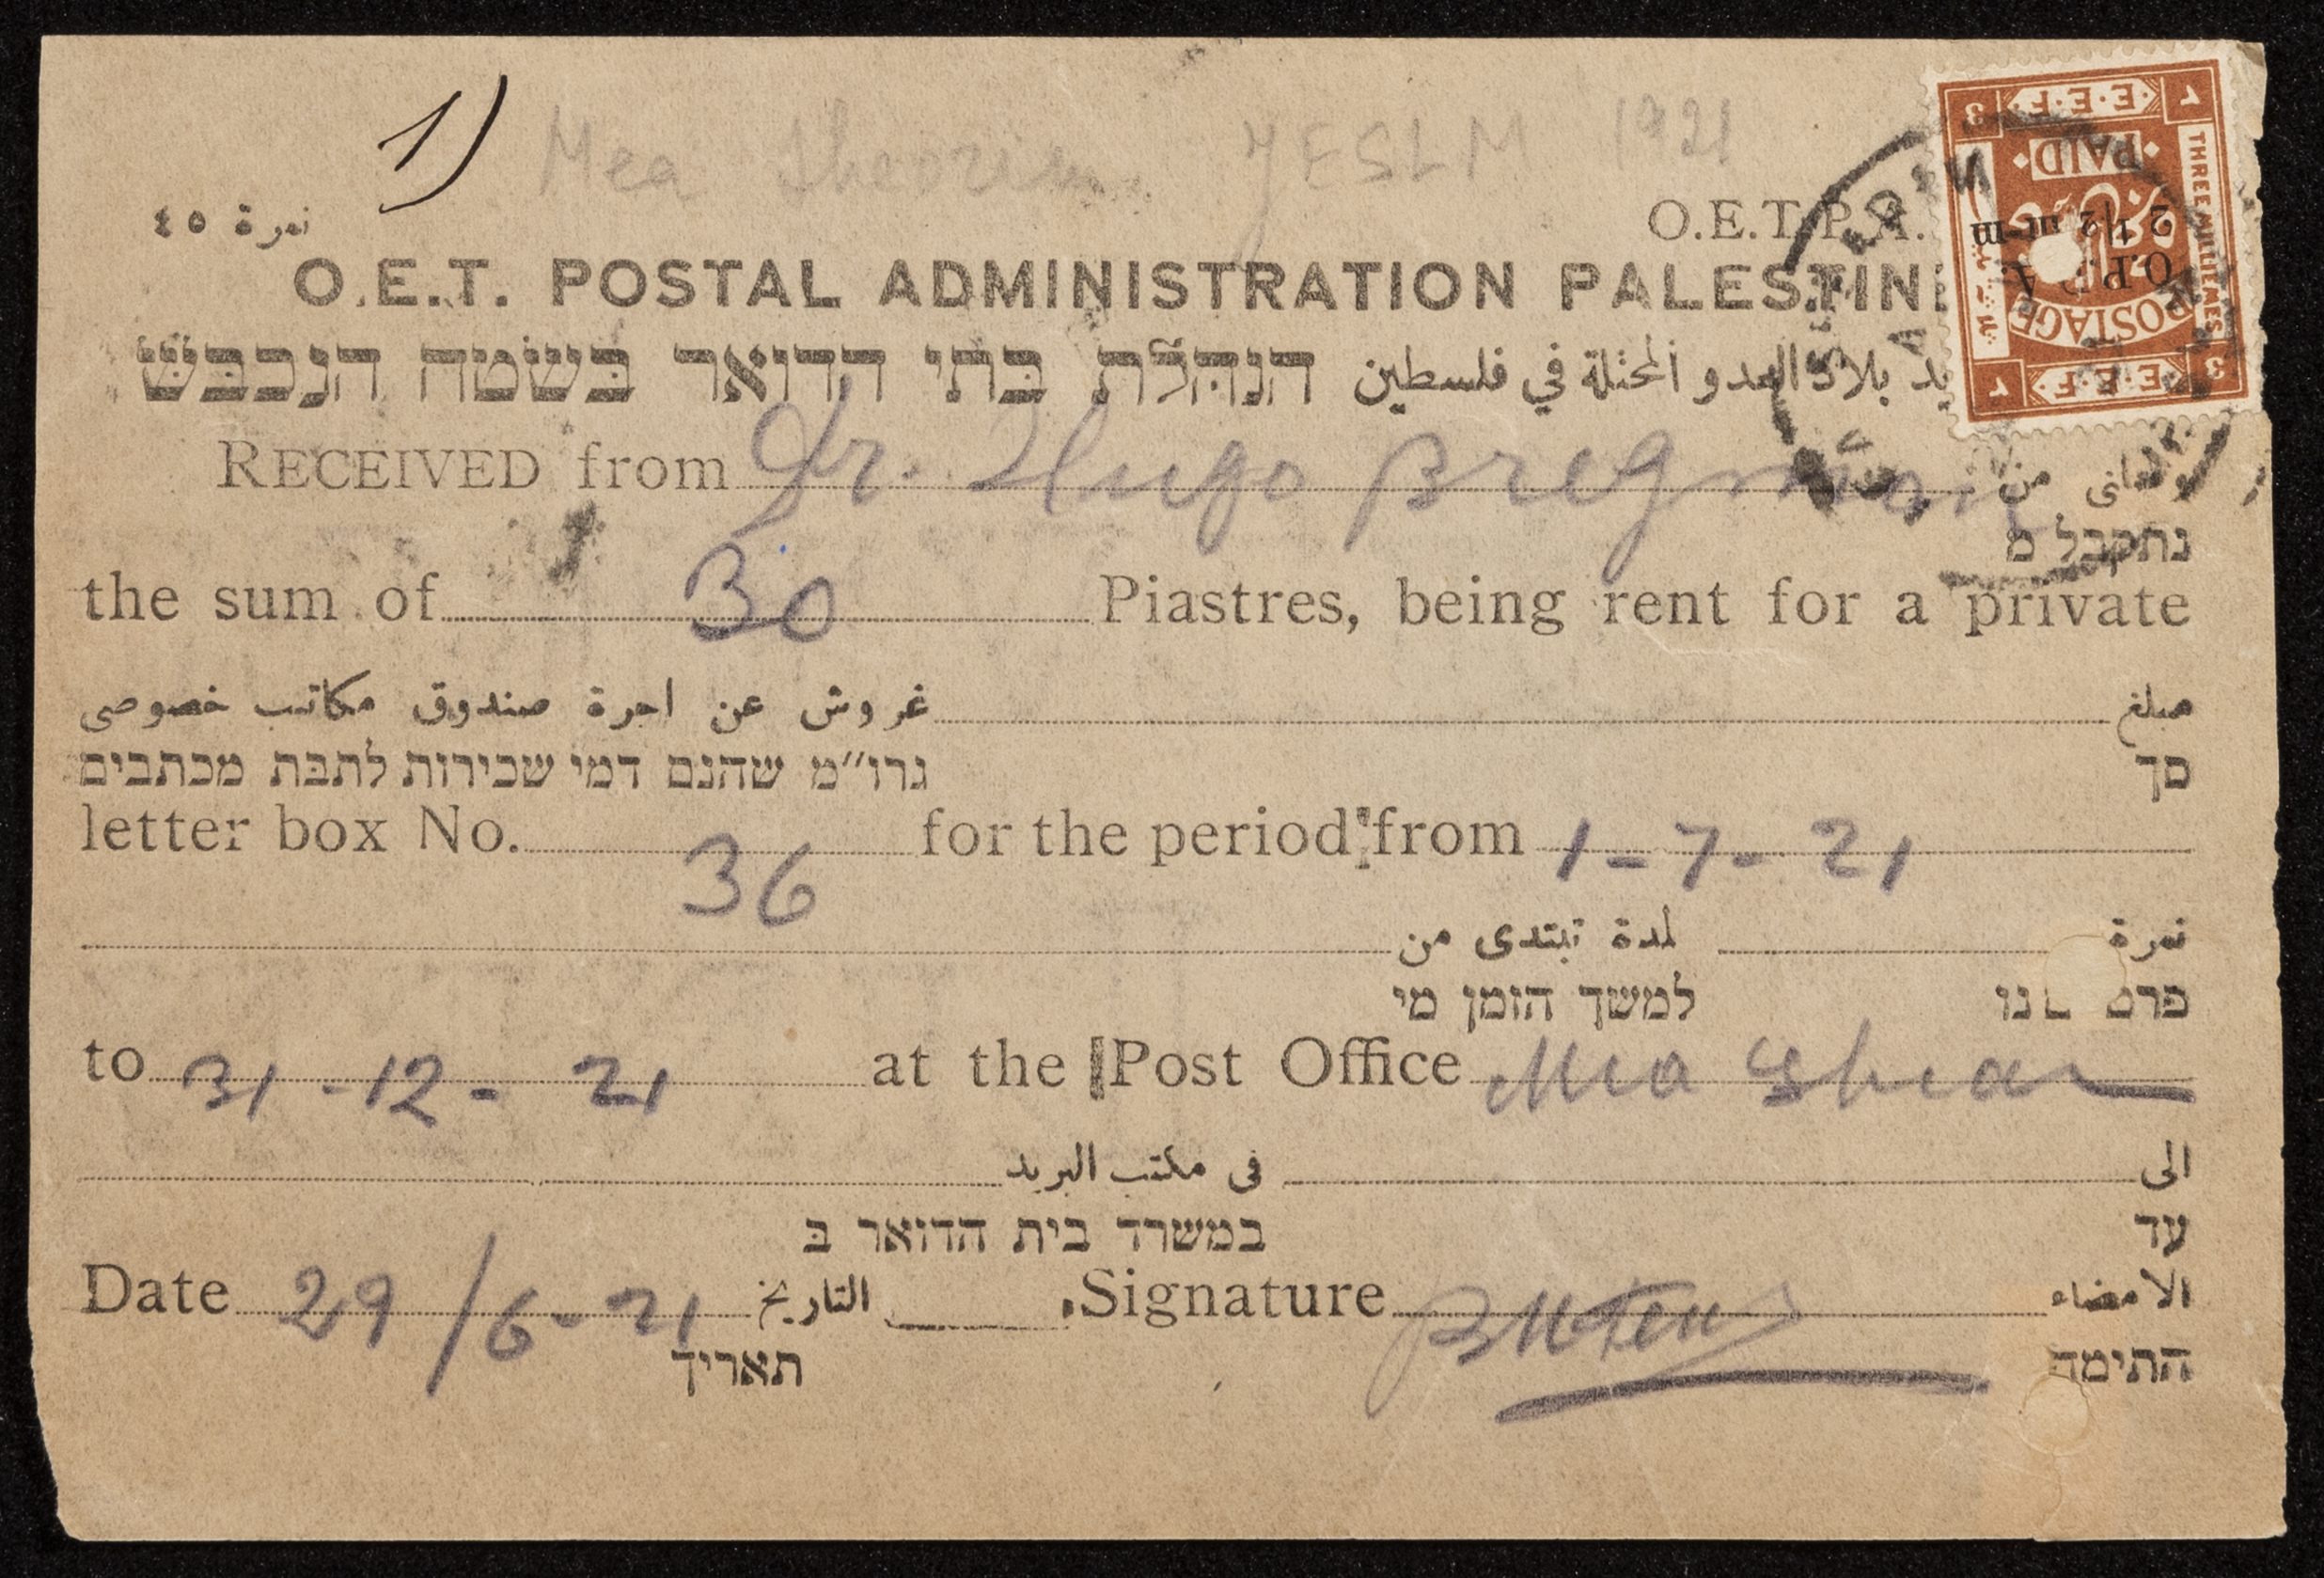 1) Mea Sheorim JESLM 1921
نمرة ٤٥ O.E.T.P.A.
O.E.T. POSTAL ADMINISTRATION PALESTINE
הנהלת בתי הדואר בשטה הנכבש يد بلاد العدو المحتلة في فلسطين
RECEIVED from Dr. Hugo Bregman من
נתקבל מ
the sum of 30 Piastres, being rent for a private
مبلغ غروش عن اجرة صندوق مكاتب خصوصى
סך גרו״מ שהנם דמי שכירות לתבת מכתבים
letter box No. 36 for the period from 1-7-21
نمرة لمدة تبتدى من
למשך הזמן מי
to 31-12-21 at the Post Office Mea Shear
الى فى مكتب البريد
עד במשרד בית הדואר ב
Date 29/6-21 التاريخ Signature الامضاء
תאריך התימה
E.E.F.
3
PAID
THREE MILLIEMES
O.P.D.A.
2 1/2 m-m
POSTAGE
E.E.F.
3